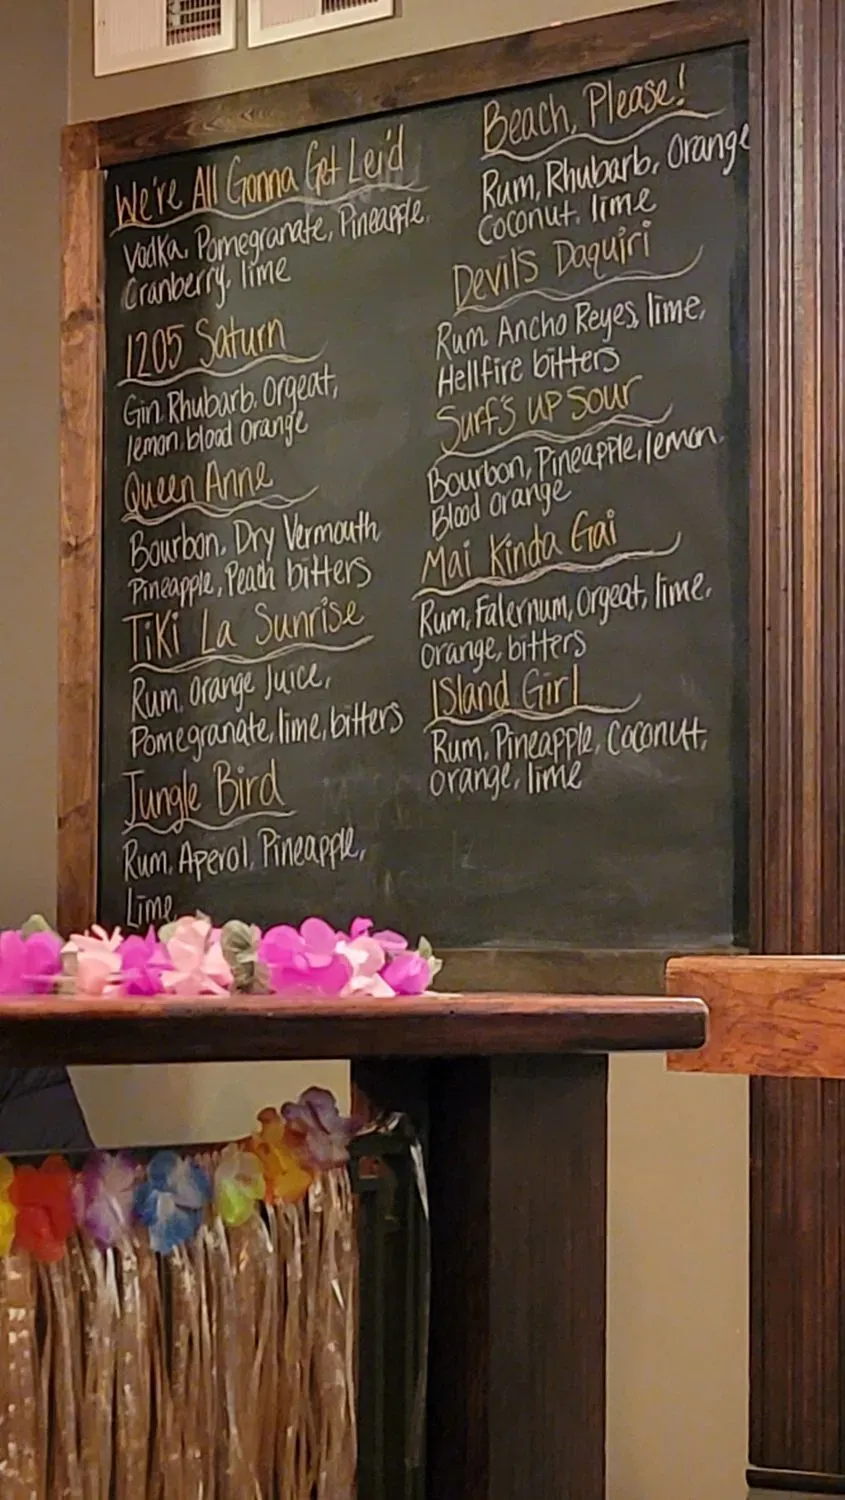 We're All Gonna Get Lei'd
Vodka, Pomegranate, Pineapple,
Cranberry, lime
1205 Saturn
Gin, Rhubarb, Orgeat,
lemon, blood orange
Queen Anne
Bourbon, Dry Vermouth,
Pineapple, Peach bitters
Tiki La Sunrise
Rum, Orange Juice,
Pomegranate, lime, bitters
Jungle Bird
Rum, Aperol, Pineapple,
Lime
Beach, Please!
Rum, Rhubarb, Orange
Coconut, lime
Devil's Daquiri
Rum, Ancho Reyes, lime,
Hellfire bitters
Surf's up Sour
Bourbon, Pineapple, lemon,
Blood orange
Mai Kinda Gai
Rum, Falernum, Orgeat, lime,
orange, bitters
Island Girl
Rum, Pineapple, Coconut,
orange, lime